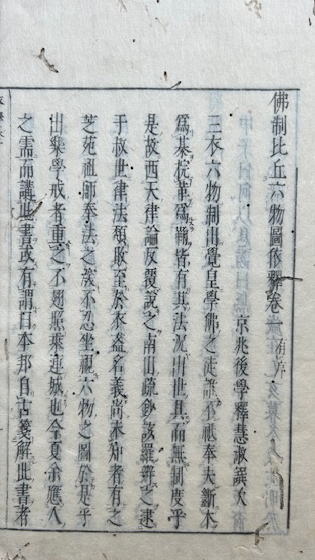 佛制比丘六物圖依釋卷 有序
京兆後學釋慧淑譔
三衣六物制出覺皇學佛之徒誰不祗奉夫斷木
為棊梡革為鞠皆有其法況出世具而無制度乎
是故西天律論反覆說之南山疏鈔羅舉之逮
于叔世律法頹敗至於衣盔名義尚未知者有之
芝苑祖師奉法之茂不忍坐視六物之圖於是乎
出槩學戒者重之不翅照乘連城也今夏余應人
之需而講此書或有謂曰本邦自古箋解此書者